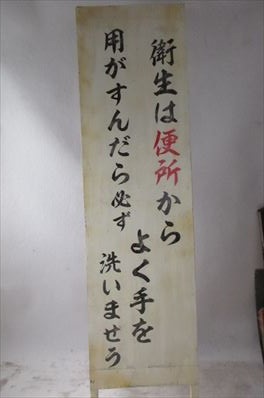 衛生は便所から
用がすんだら必ず
よく手を
洗いませう